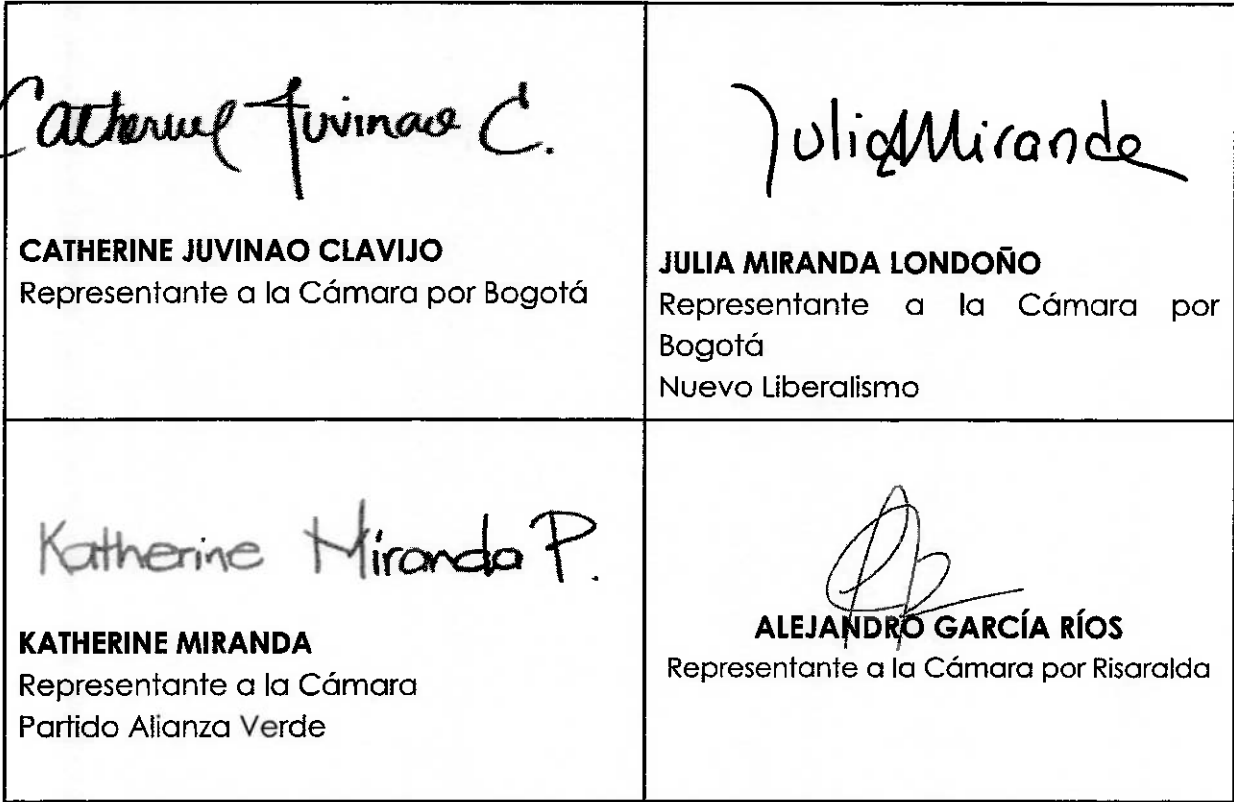 Catherine Juvinao C.
CATHERINE JUVINAO CLAVIJO
Representante a la Cámara por Bogotá
Julia Miranda
JULIA MIRANDA LONDOÑO
Representante a la Cámara por
Bogotá
Nuevo Liberalismo
Katherine Miranda P.
KATHERINE MIRANDA
Representante a la Cámara
Partido Alianza Verde
ALEJANDRO GARCÍA RÍOS
Representante a la Cámara por Risaralda